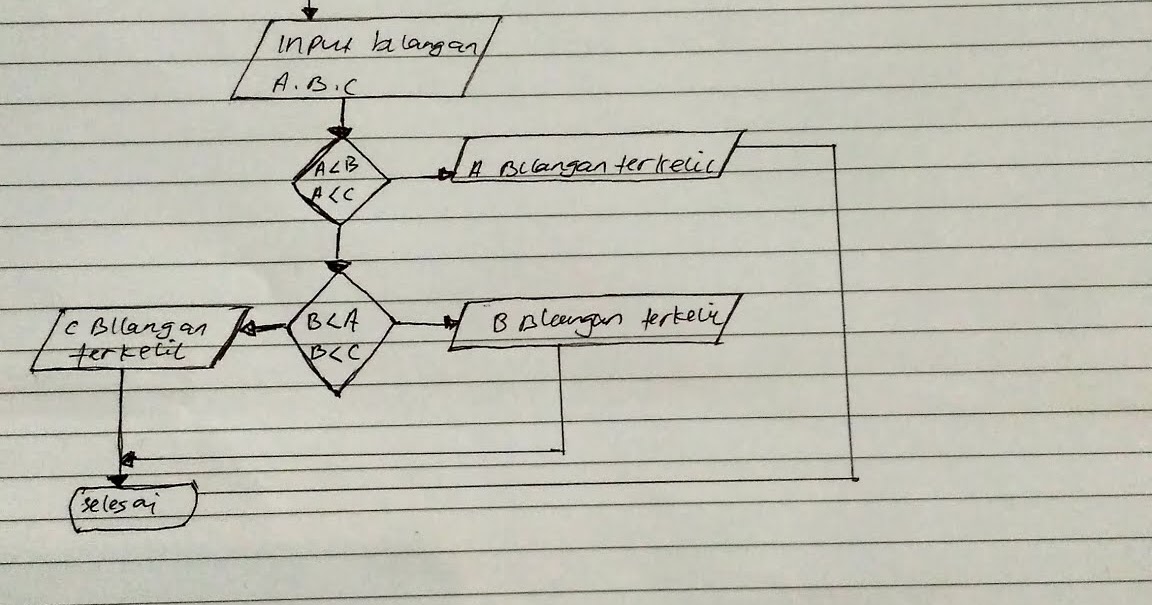 Input bilangan
A.B.C
A<B
A<C
A Bilangan terkecil
B<A
B<C
B Bilangan terkecil
C Bilangan
terkecil
selesai